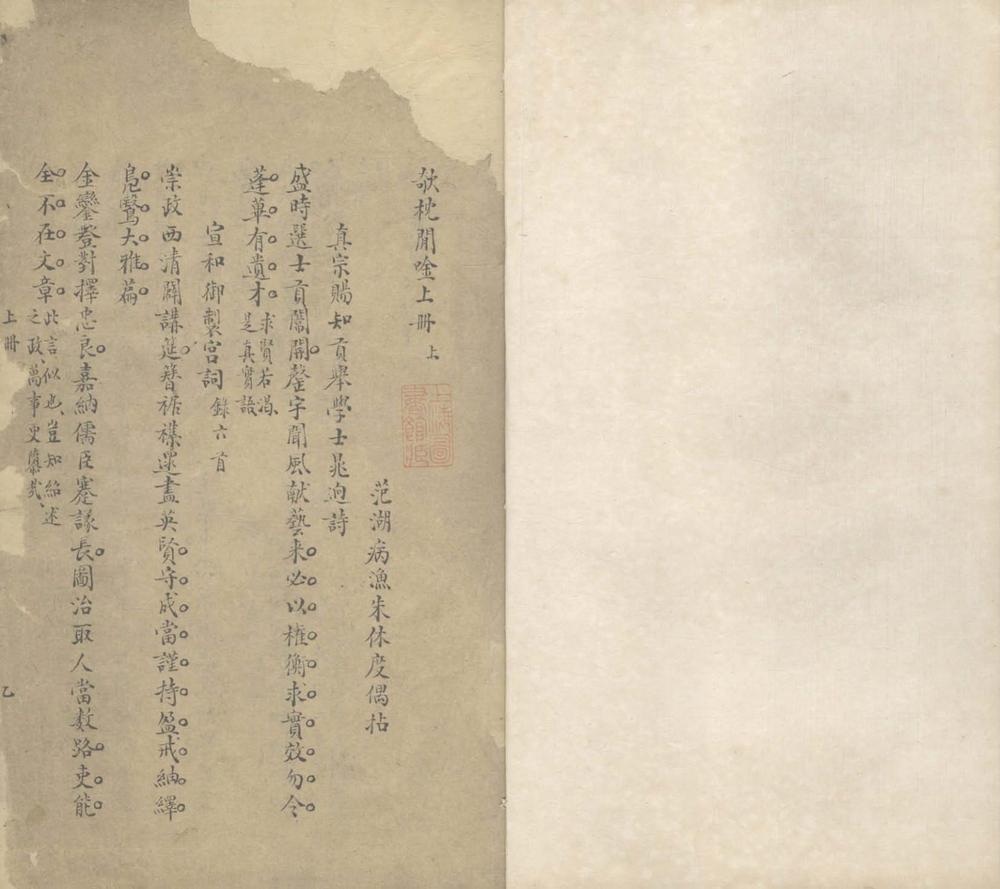 欹枕閒唫上冊 上
上海圖書館藏
范湖病漁朱休度偶拈
真宗賜知貢舉學士晁迥詩
盛時選士貢闈開罄宇聞風献藝来必以權衡求實效勿令
蓬蓽有遺才求賢若渴是真實語
宣和御製宮詞錄六首
崇政西清闢講筵簪裾襍遝盡英賢守成當謹持盈戒紬繹
鳧鷖大雅篇
金鑾登對擇忠良嘉納儒臣蹇諤長圖治取人當数路吏能
全不在文章此言似也豈知紹述之政萬事更隳哉
上冊
乙